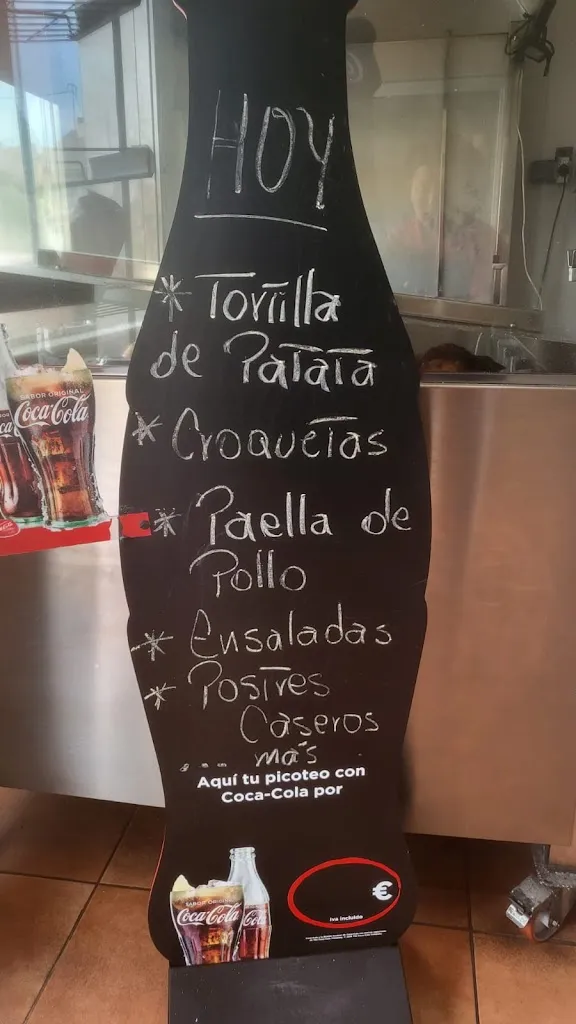 HOY
* Tortilla
de Patata
* Croquetas
* Paella de
Pollo
* Ensaladas
* Postres
Caseros
... más
Aquí tu picoteo con
Coca-Cola por
€
Iva incluido
SABOR ORIGINAL
Coca-Cola
SABOR ORIGINAL
Coca-Cola